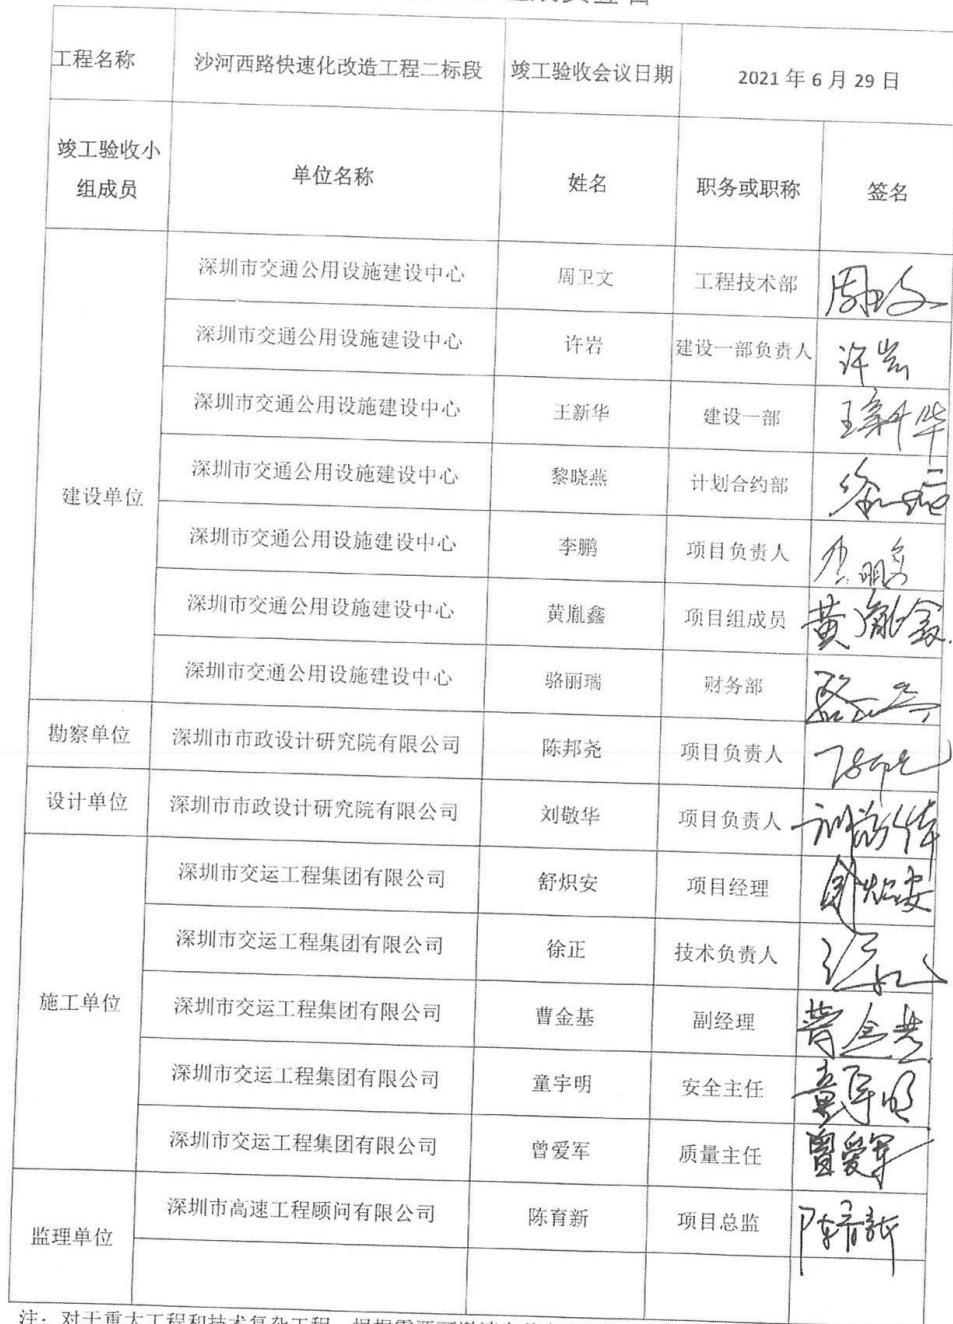 工程名称 沙河西路快速化改造工程二标段 竣工验收会议日期 2021 年 6 月 29 日
竣工验收小组成员 单位名称 姓名 职务或职称 签名
建设单位
深圳市交通公用设施建设中心 周卫文 工程技术部
深圳市交通公用设施建设中心 许岩 建设一部负责人 许岩
深圳市交通公用设施建设中心 王新华 建设一部 王新华
深圳市交通公用设施建设中心 黎晓燕 计划合约部
深圳市交通公用设施建设中心 李鹏 项目负责人
深圳市交通公用设施建设中心 黄胤鑫 项目组成员 黄胤鑫
深圳市交通公用设施建设中心 骆丽瑞 财务部
勘察单位 深圳市市政设计研究院有限公司 陈邦尧 项目负责人
设计单位 深圳市市政设计研究院有限公司 刘敬华 项目负责人
施工单位
深圳市交运工程集团有限公司 舒炽安 项目经理
深圳市交运工程集团有限公司 徐正 技术负责人
深圳市交运工程集团有限公司 曹金基 副经理 曹金基
深圳市交运工程集团有限公司 童宇明 安全主任 童宇明
深圳市交运工程集团有限公司 曾爱军 质量主任 曾爱军
监理单位 深圳市高速工程顾问有限公司 陈育新 项目总监 陈育新